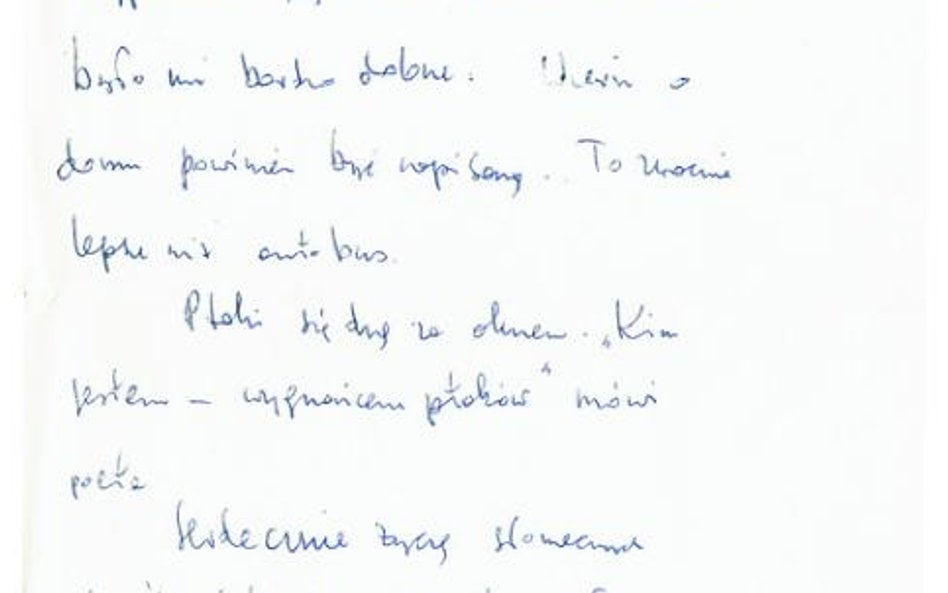 było mi bardzo dobrze. Wiersz o
domu powinien być napisany.. To znacznie
lepsze niż autobus.
Ptaki się drą za oknem. „Kim
jestem – wygnańcem ptaków" mówi
poeta
Serdecznie życzę słonecznych